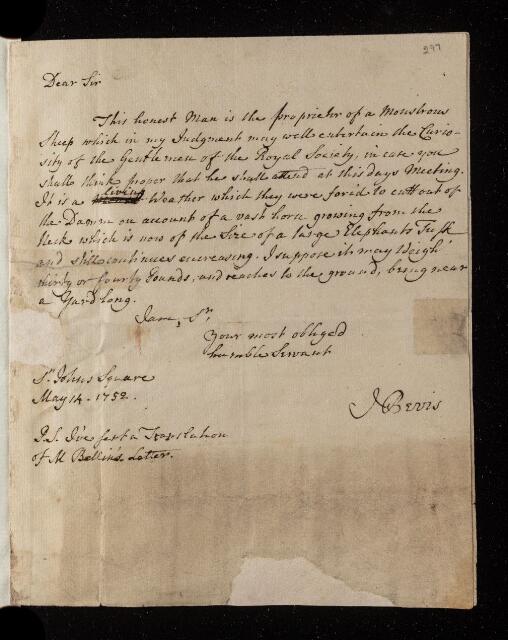 297
Dear Sir
This honest Man is the proprietr of a Monstrous
Sheep which in my Judgment may well entertain the Curio-
sity of the Gentlemen of the Royal Society, in case you
shall think proper that he shall attend at this days Meeting.
It is a living Weather which they were forc'd to cutt out of
the Damm on account of a vast horn growing from the
Neck which is now of the Size of a large Elephants Tusk
and still continues encreasing. I suppose it may weigh
thirty or fourty Pounds, and reaches to the ground, being near
a Yard long.
I am, Sr.
Your most obliged
humble Servant
St. Johns Square
May 14. 1752.
J Bevis
P.S. I've sent a Translation
of M Bellin's Letter.